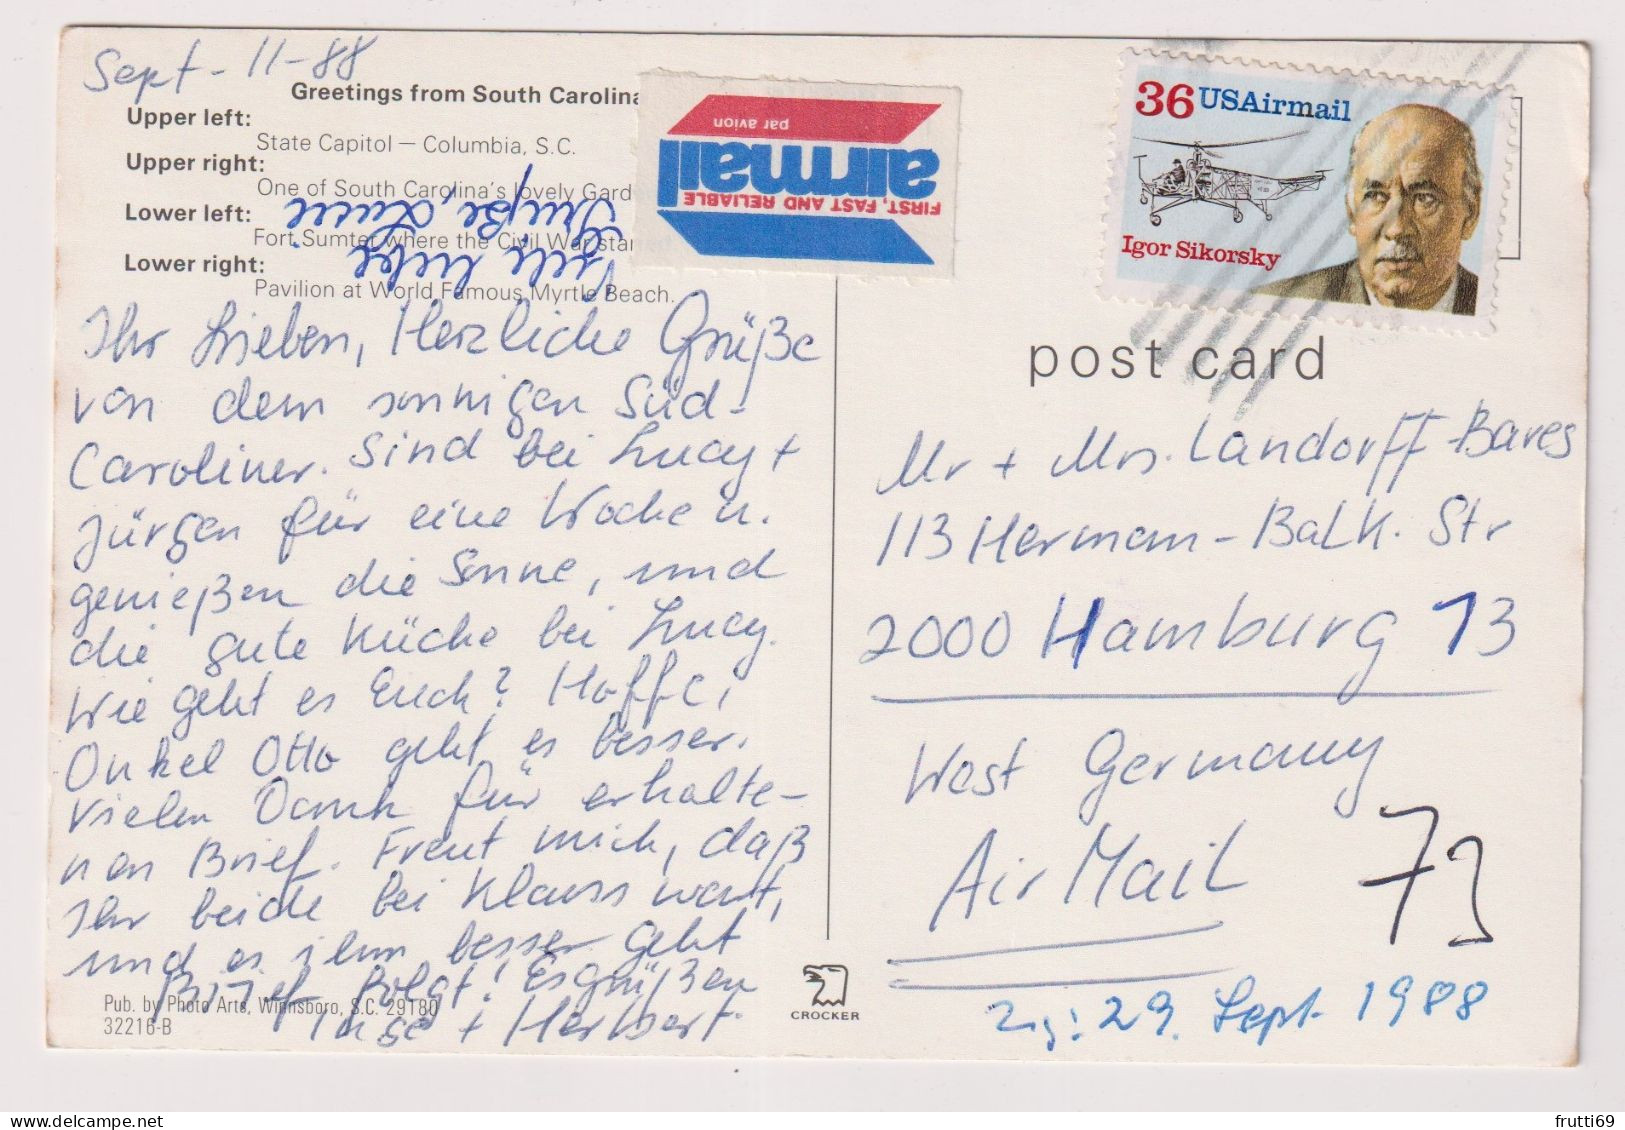 Sept - 11-88
Greetings from South Carolina
Upper left:
State Capitol — Columbia, S.C.
Upper right:
One of South Carolina's lovely Gard
Lower left:
Fort Sumter where the Civil War started.
Lower right:
Pavilion at World Famous Myrtle Beach.
Viele liebe
Grüße,
FIRST, FAST AND RELIABLE
airmail
par avion
36 USAirmail
Igor Sikorsky
Ihr Lieben, Herzliche Grüße
von dem sonnigen Süd-
Caroliner. Sind bei Lucy +
Jürgen für eine Woche u.
genießen die Sonne, und
die gute Küche bei Lucy.
Wie geht es Euch? Hoffe,
Onkel Otto geht es besser.
Vielen Dank für erhalte-
nen Brief. Freut mich, daß
Ihr beide bei Klauss wart,
und es ihm besser geht
Brief folgt! Es grüßen
Inge + Herbert.
Pub. by Photo Arts, Winnsboro, S.C. 29180
32216-B
CROCKER
post card
Mr + Mrs. Landorff-Bares
113 Herman-Balk. Str
2000 Hamburg 13
West Germany
Air Mail
73
29. Sept. 1988
frutti69